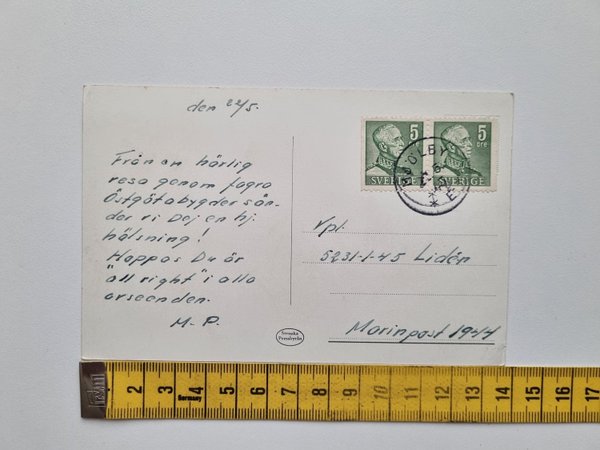 den 22/5.
Från en härlig
resa genom fagra
Östgötabygder sän-
der vi Dej en hj.
hälsning!
Hoppas Du är
"all right" i alla
avseenden.
M.-P.
5
SVERIGE
5
öre
SVERIGE
MJÖLBY
Vpl.
5231-1-45 Lidén
Marinpost 1944
Svenska
Pressbyrån
2 3 4 5 6 7 8 9 10 11 12 13 14 15 16 17
Germany